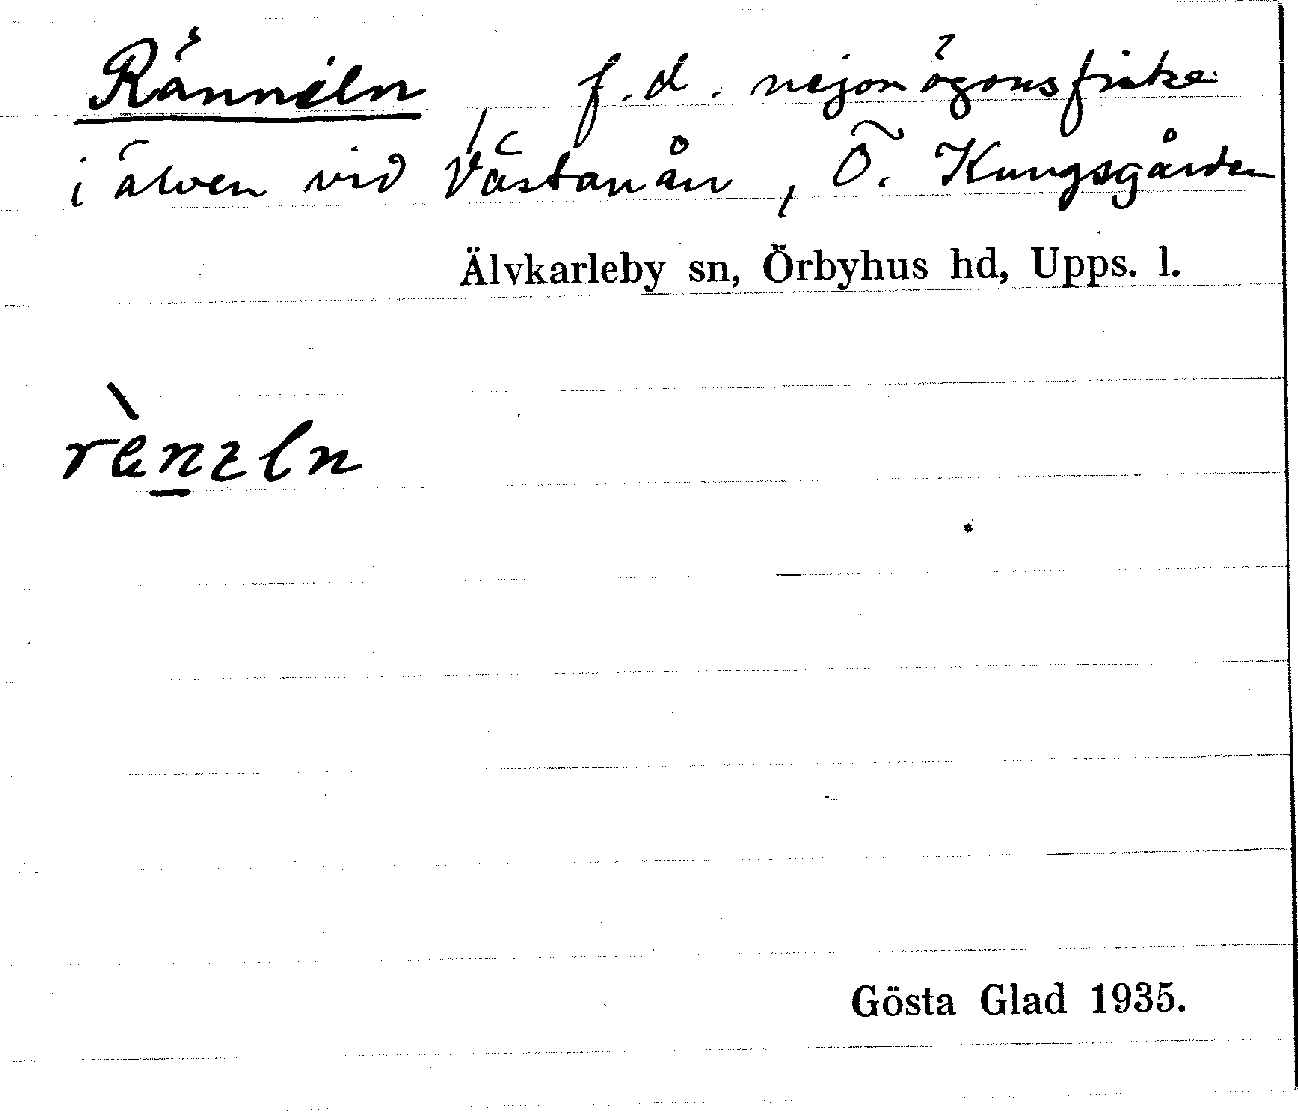 Ränneln, f.d. nejonögonsfiske
i älven vid Västanån, Ö. Kungsgården
Älvkarleby sn, Örbyhus hd, Upps. l.
Gösta Glad 1935.